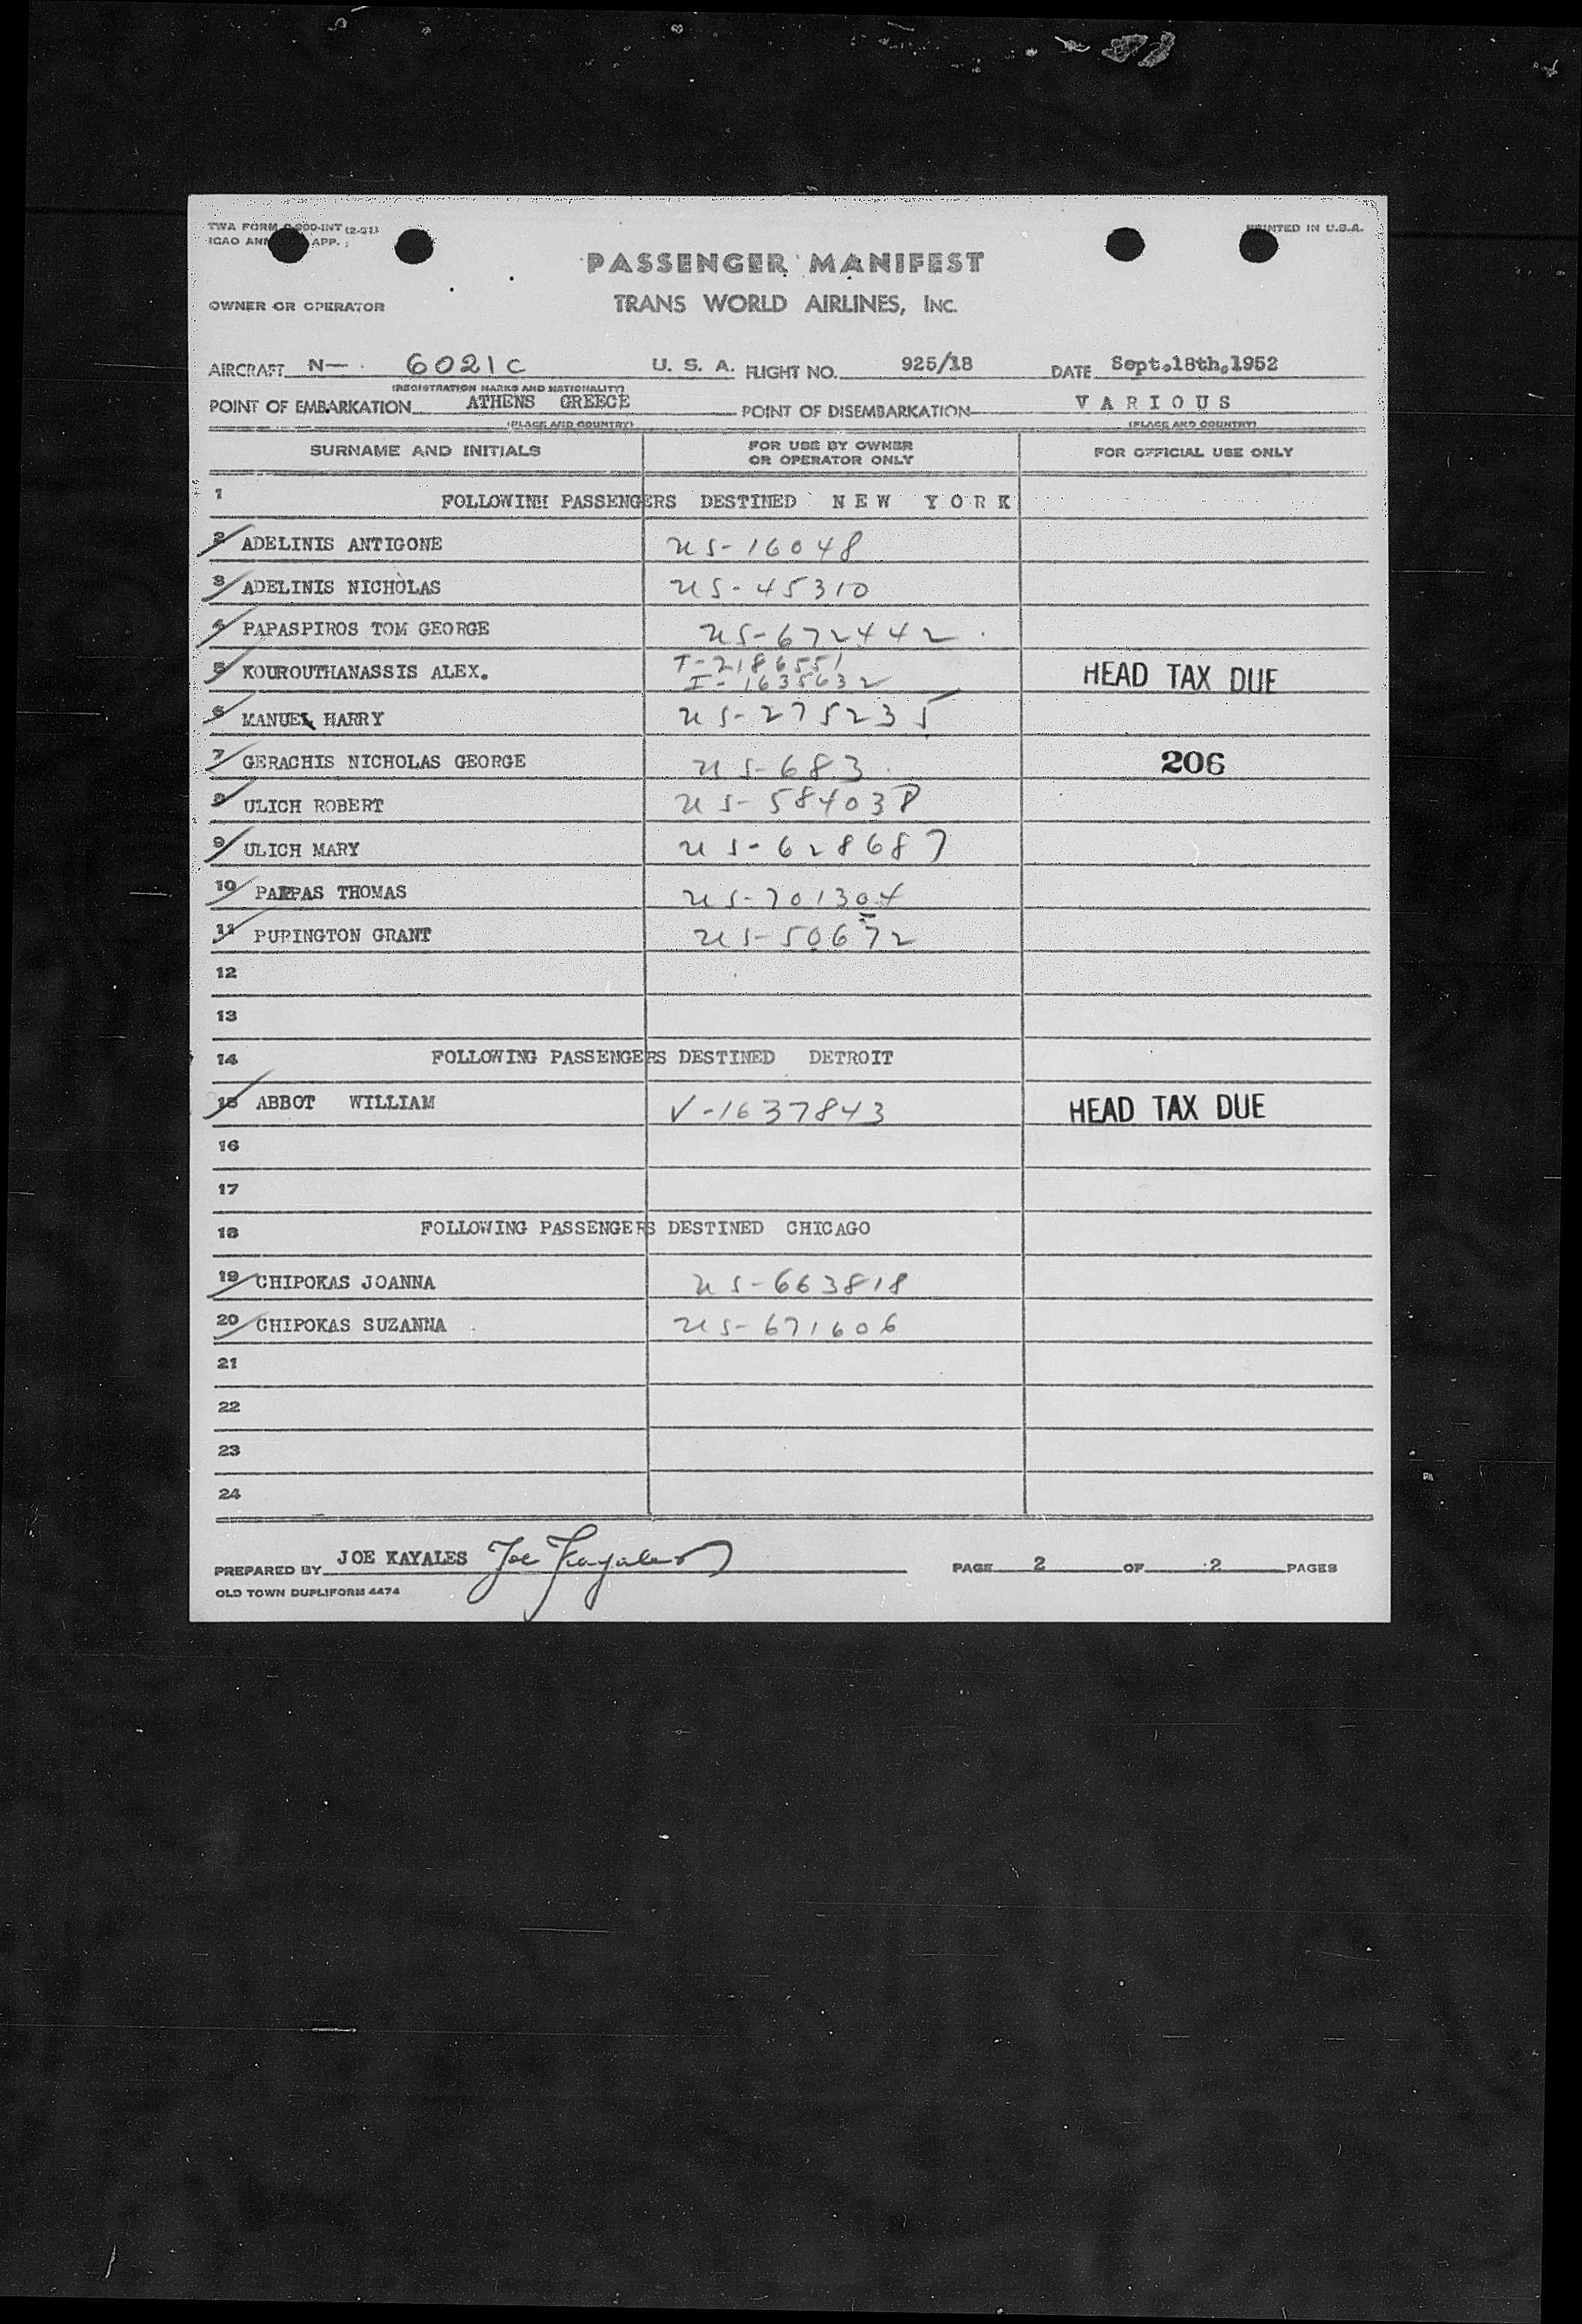 TWA FORM 000-INT (2-51)
ICAO APP.
PRINTED IN U.S.A.
PASSENGER MANIFEST
OWNER OR OPERATOR TRANS WORLD AIRLINES, INC.
AIRCRAFT N— 6021C U. S. A. FLIGHT NO. 925/18 DATE Sept.18th,1952
(REGISTRATION MARKS AND NATIONALITY)
POINT OF EMBARKATION ATHENS GREECE POINT OF DISEMBARKATION VARIOUS
(PLACE AND COUNTRY) (PLACE AND COUNTRY)
SURNAME AND INITIALS FOR USE BY OWNER OR OPERATOR ONLY FOR OFFICIAL USE ONLY
1 FOLLOWINH PASSENGERS DESTINED NEW YORK
2 ADELINIS ANTIGONE US-16048
3 ADELINIS NICHOLAS US-45310
4 PAPASPIROS TOM GEORGE US-672442
5 KOUROUTHANASSIS ALEX. T-2186551 I-1635632 HEAD TAX DUE
6 MANUEL HARRY US-275235
7 GERACHIS NICHOLAS GEORGE US-683 206
8 ULICH ROBERT US-584038
9 ULICH MARY US-628687
10 PAPPAS THOMAS US-701304
11 PUPINGTON GRANT US-50672
12
13
14 FOLLOWING PASSENGERS DESTINED DETROIT
15 ABBOT WILLIAM V-1637843 HEAD TAX DUE
16
17
18 FOLLOWING PASSENGERS DESTINED CHICAGO
19 CHIPOKAS JOANNA US-663818
20 CHIPOKAS SUZANNA US-671606
21
22
23
24
PREPARED BY JOE KAYALES Joe Kayales PAGE 2 OF 2 PAGES
OLD TOWN DUPLIFORM 4474